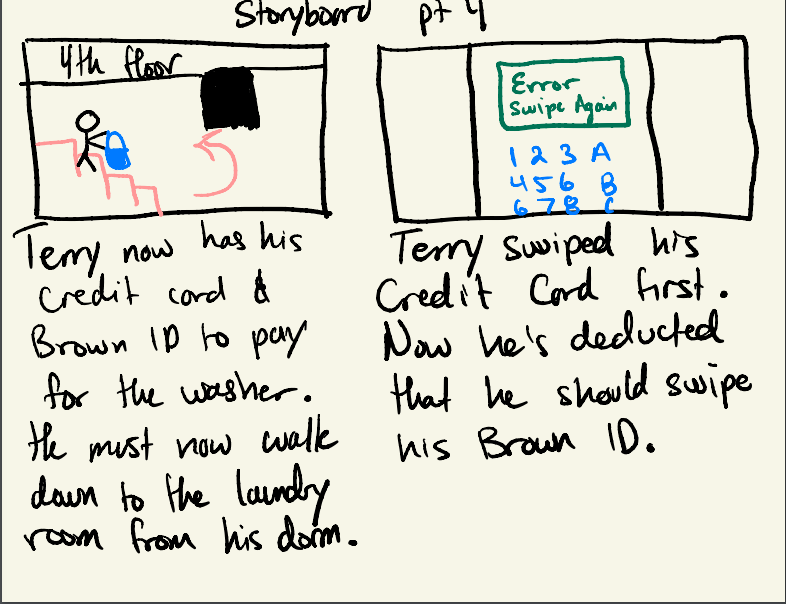 Storyboard pt 4
4th floor
Terry now has his
credit card &
Brown ID to pay
for the washer.
He must now walk
down to the laundry
room from his dorm.
Error
Swipe Again
1 2 3 A
4 5 6 B
6 7 8 C
Terry swiped his
Credit Card first.
Now he's deducted
that he should swipe
his Brown ID.